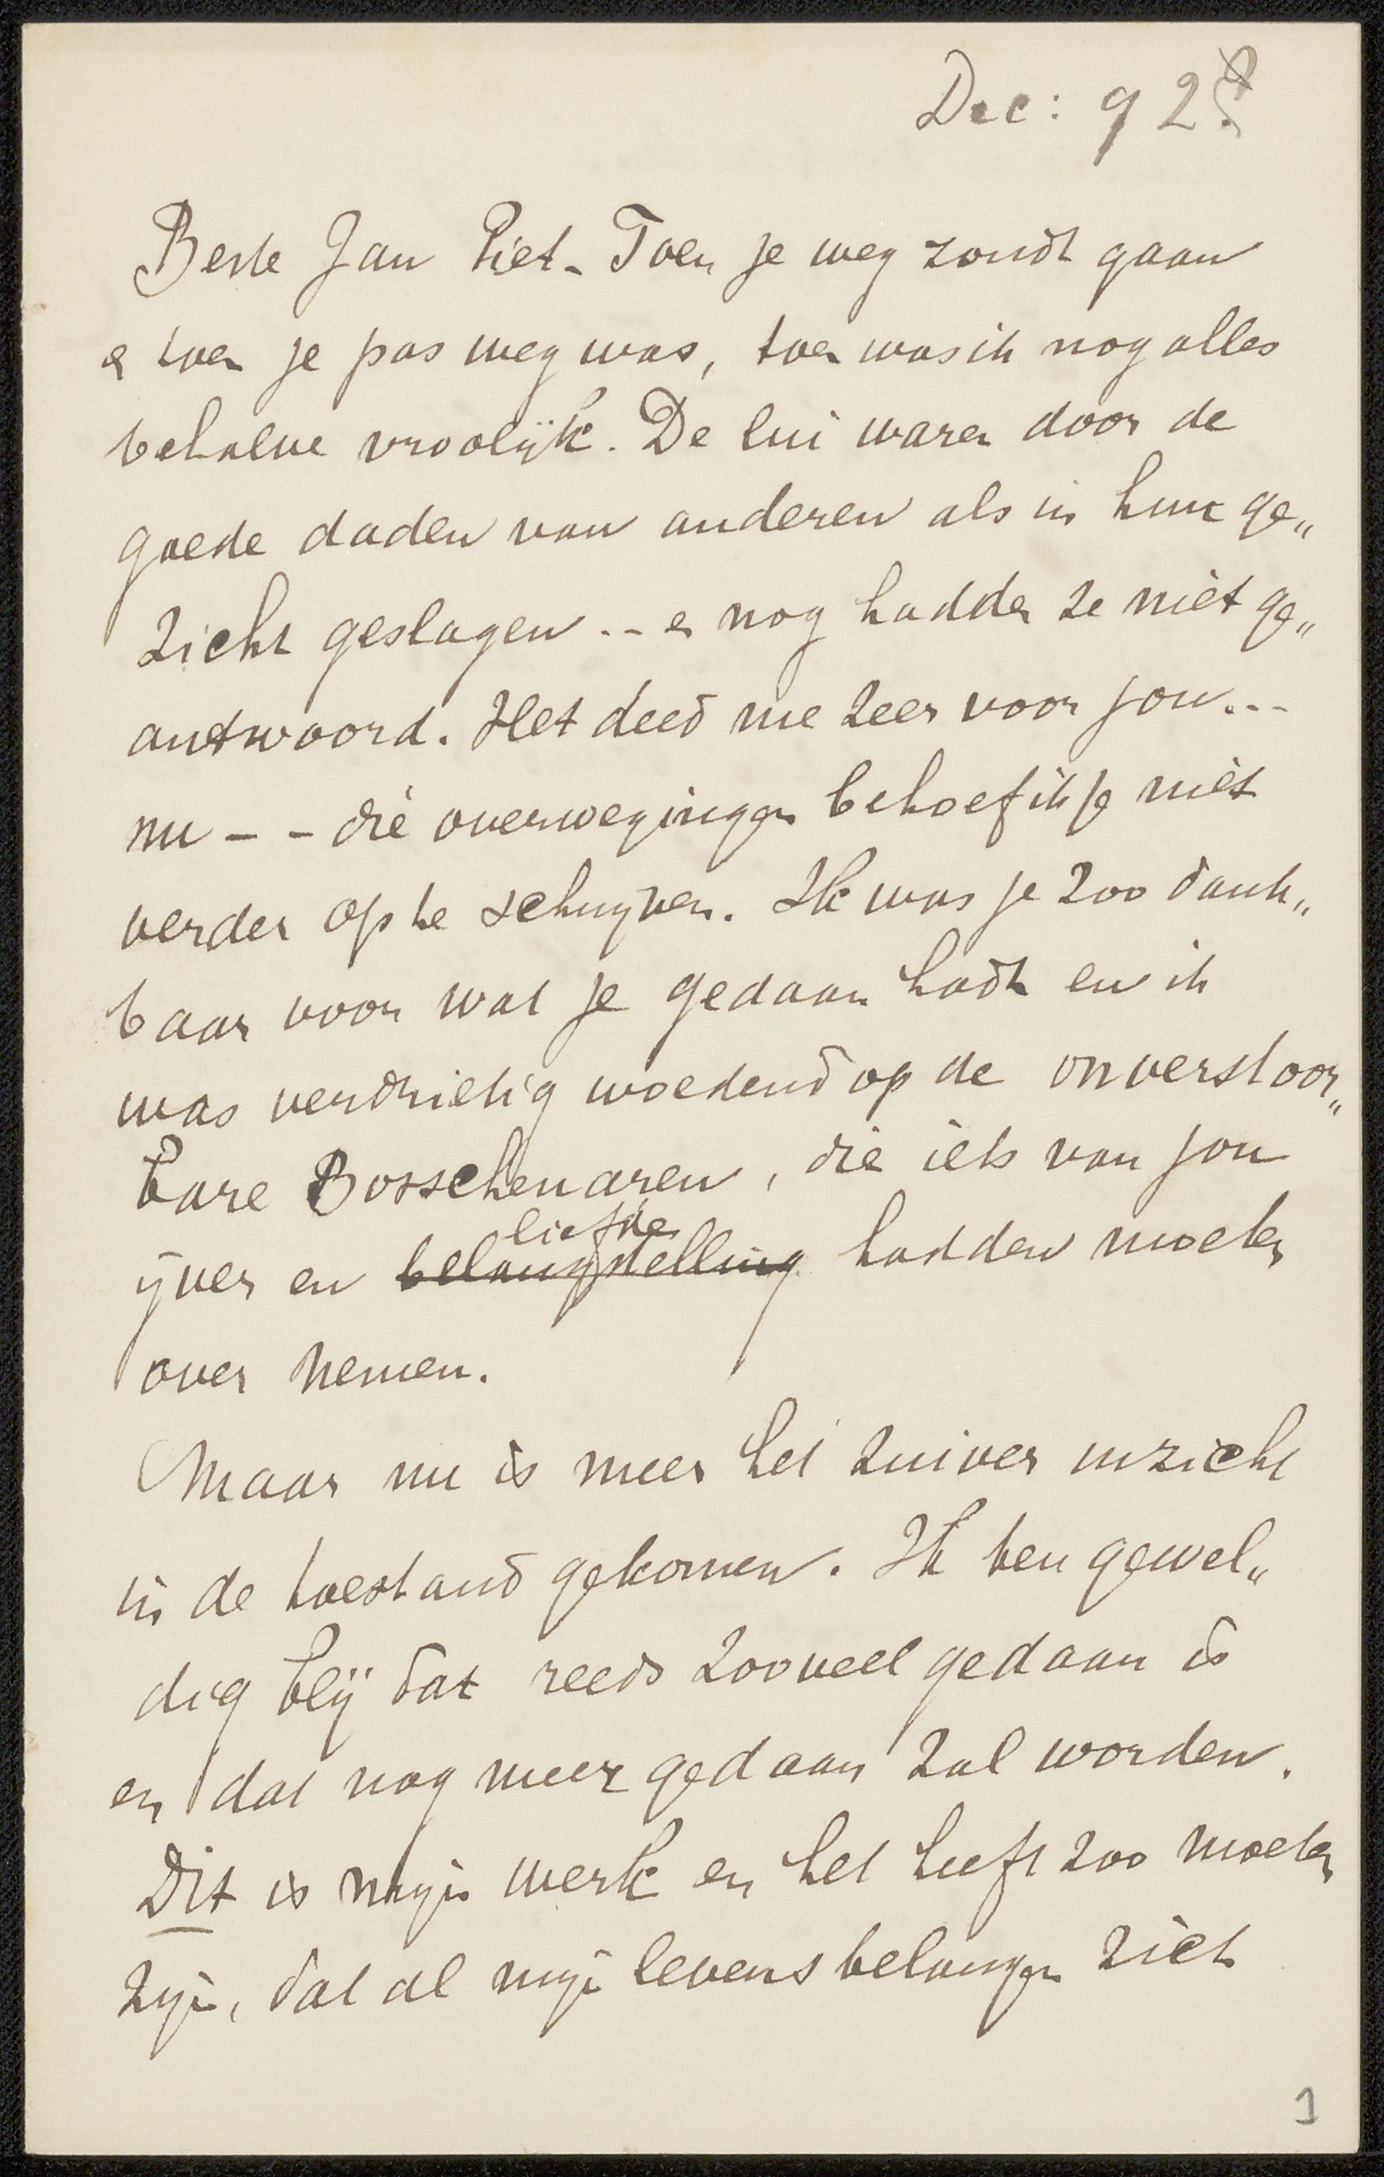 Dec: 92?
Beste Jan Piet - Toen je weg zoudt gaan
en toen je pas weg was, toen was ik nog alles
behalve vroolijk. De lui waren door de
goede daden van anderen als in hun ge„
zicht geslagen -- en nog hadden ze niet ge„
antwoord. Het deed me zeer voor jou...
nu - - die overwegingen behoef ik je niet
verder op te schrijven. Ik was je zoo dank„
baar voor wat je gedaan hadt en ik
was verdrietig woedend op de onverstoor„
bare Bosschenaren, die iets van jou
ijver en liefde
belangstelling hadden moeten
over nemen.
Maar nu is meer het zuiver inzicht
in de toestand gekomen. Ik ben gewel„
dig blij dat reeds zooveel gedaan is
en dat nog meer gedaan zal worden.
Dit is mijn werk en het heeft zoo moeten
zijn, dat al mijn levensbelangen zich
1